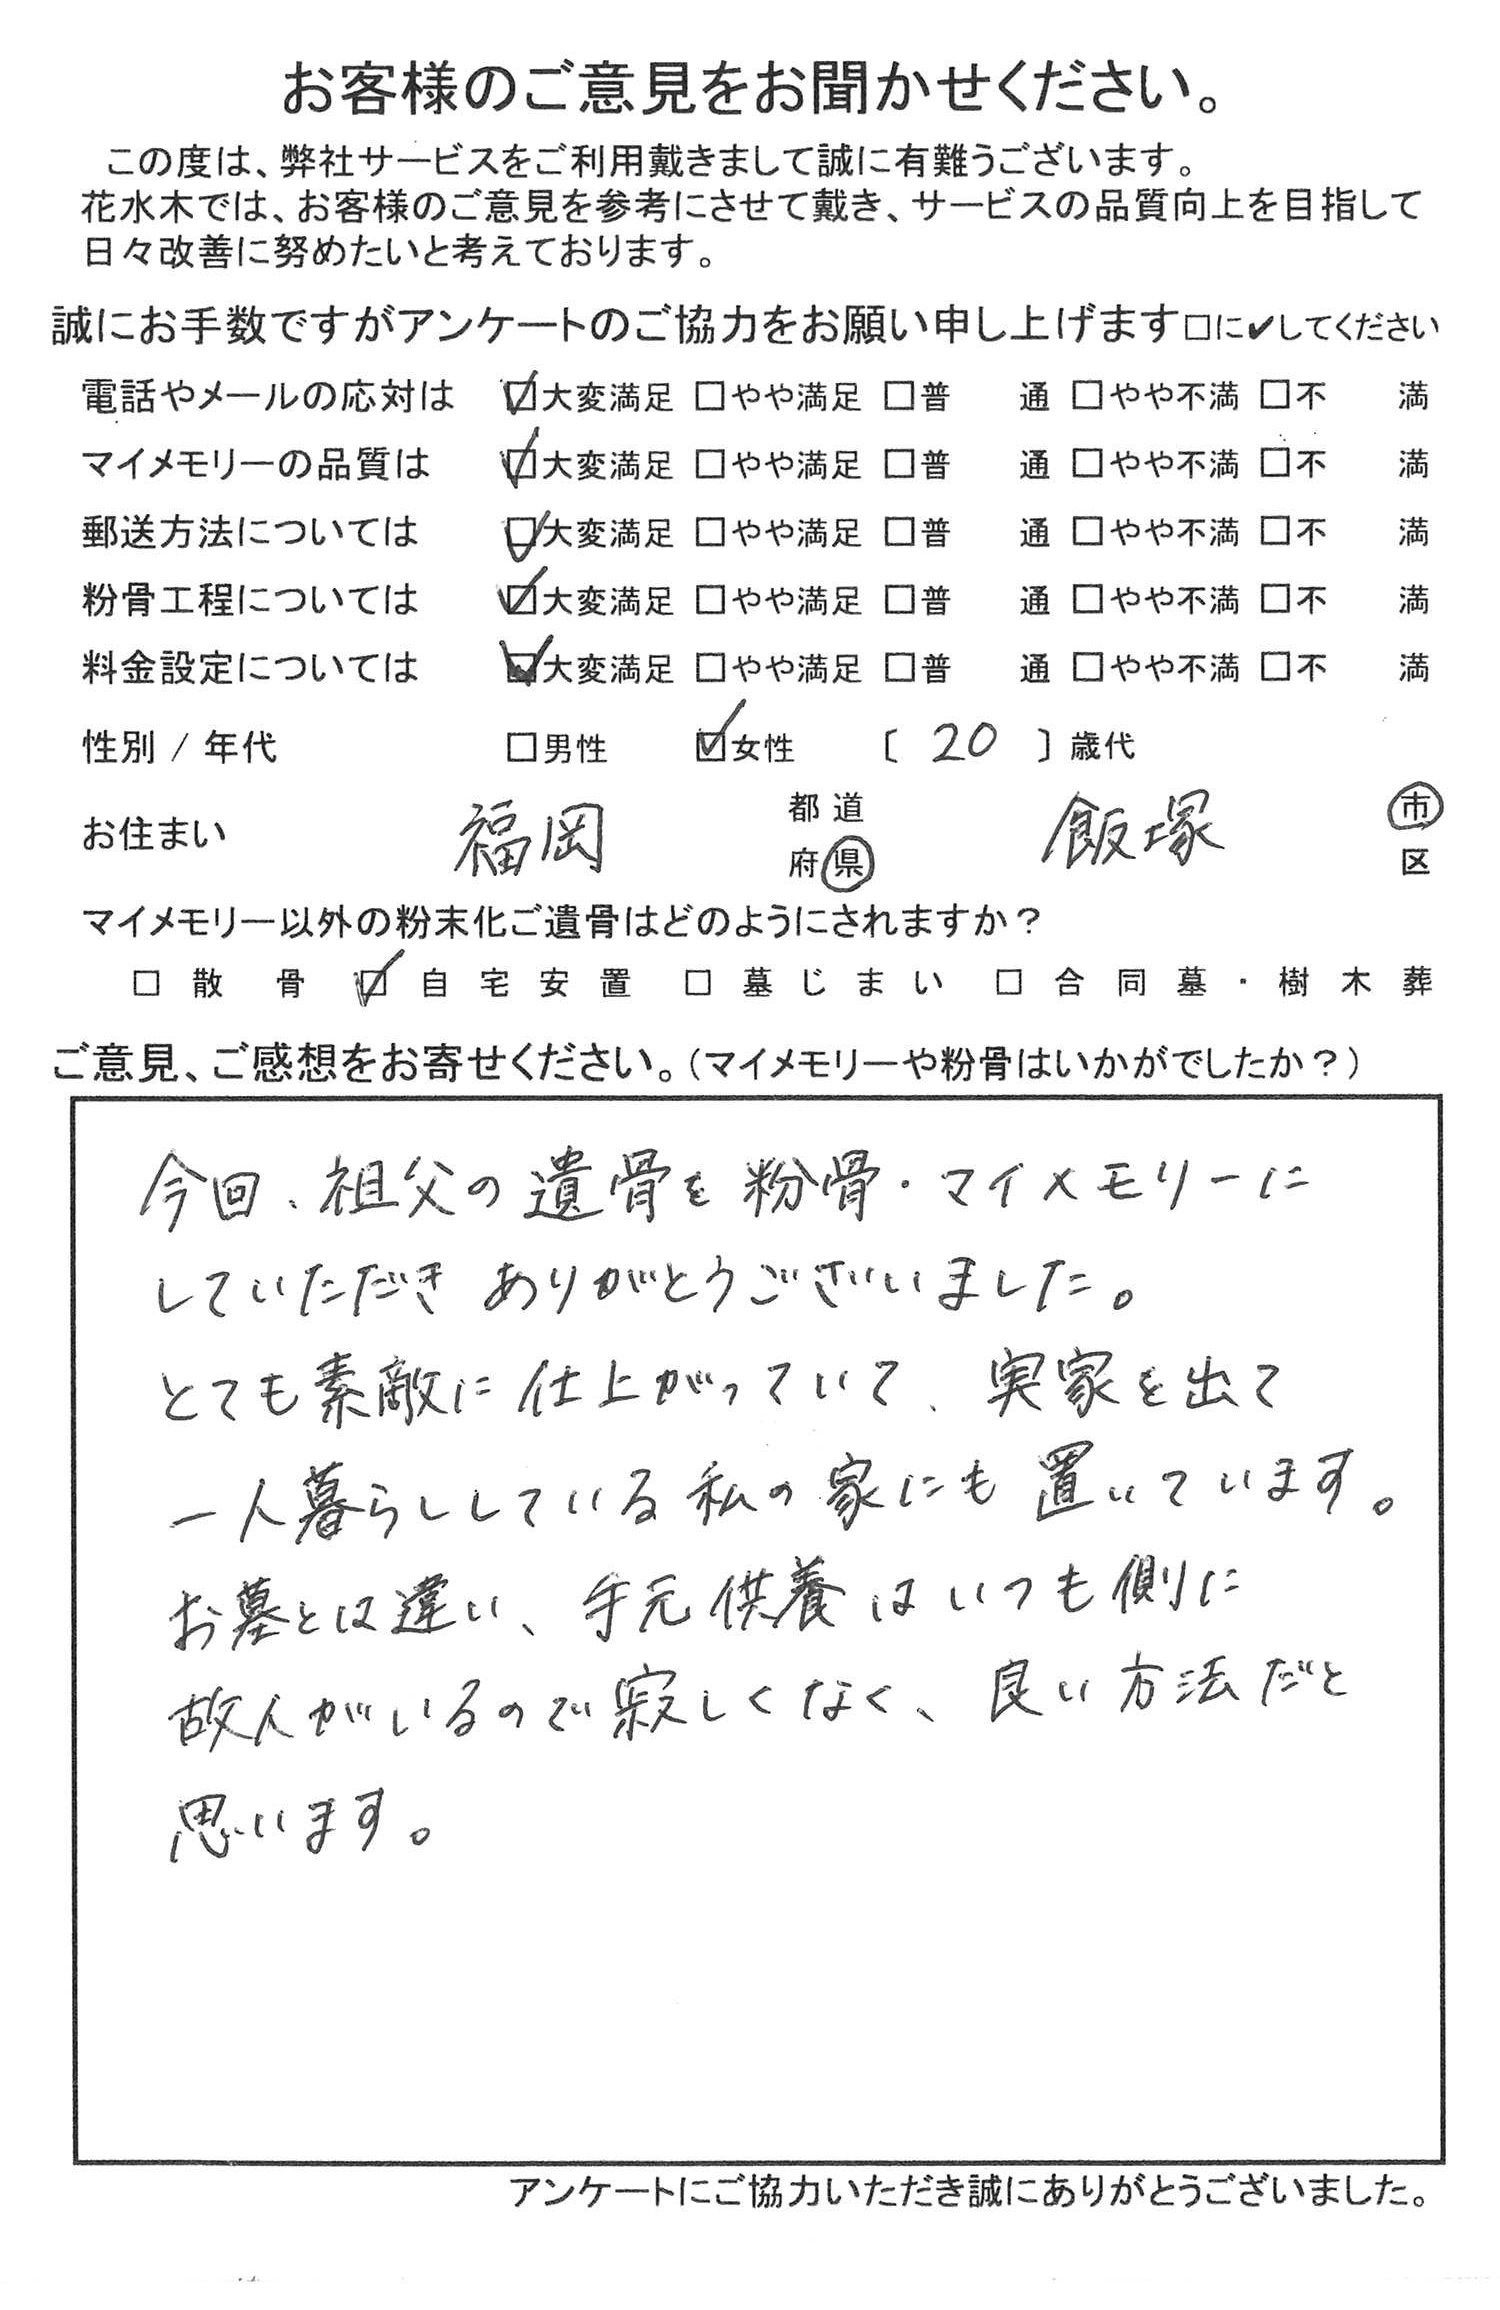 お客様のご意見をお聞かせください。
この度は、弊社サービスをご利用戴きまして誠に有難うございます。
花水木では、お客様のご意見を参考にさせて戴き、サービスの品質向上を目指して
日々改善に努めたいと考えております。
誠にお手数ですがアンケートのご協力をお願い申し上げます□に✔してください
電話やメールの応対は ☑大変満足 □やや満足 □普 通 □やや不満 □不 満
マイメモリーの品質は ☑大変満足 □やや満足 □普 通 □やや不満 □不 満
郵送方法については ☑大変満足 □やや満足 □普 通 □やや不満 □不 満
粉骨工程については ☑大変満足 □やや満足 □普 通 □やや不満 □不 満
料金設定については ☑大変満足 □やや満足 □普 通 □やや不満 □不 満
性別 / 年代 □男性 ☑女性 〔 20 〕歳代
お住まい 福岡 都道府県 飯塚 市区
マイメモリー以外の粉末化ご遺骨はどのようにされますか？
□ 散骨 ☑ 自宅安置 □ 墓じまい □ 合同墓・樹木葬
ご意見、ご感想をお寄せください。(マイメモリーや粉骨はいかがでしたか？)
今回、祖父の遺骨を粉骨・マイメモリーに
していただき ありがとうございいました。
とても素敵に仕上がっていて、実家を出て
一人暮らししている私の家にも置いています。
お墓とは違い、手元供養はいつも側に
故人がいるので寂しくなく、良い方法だと
思います。
アンケートにご協力いただき誠にありがとうございました。